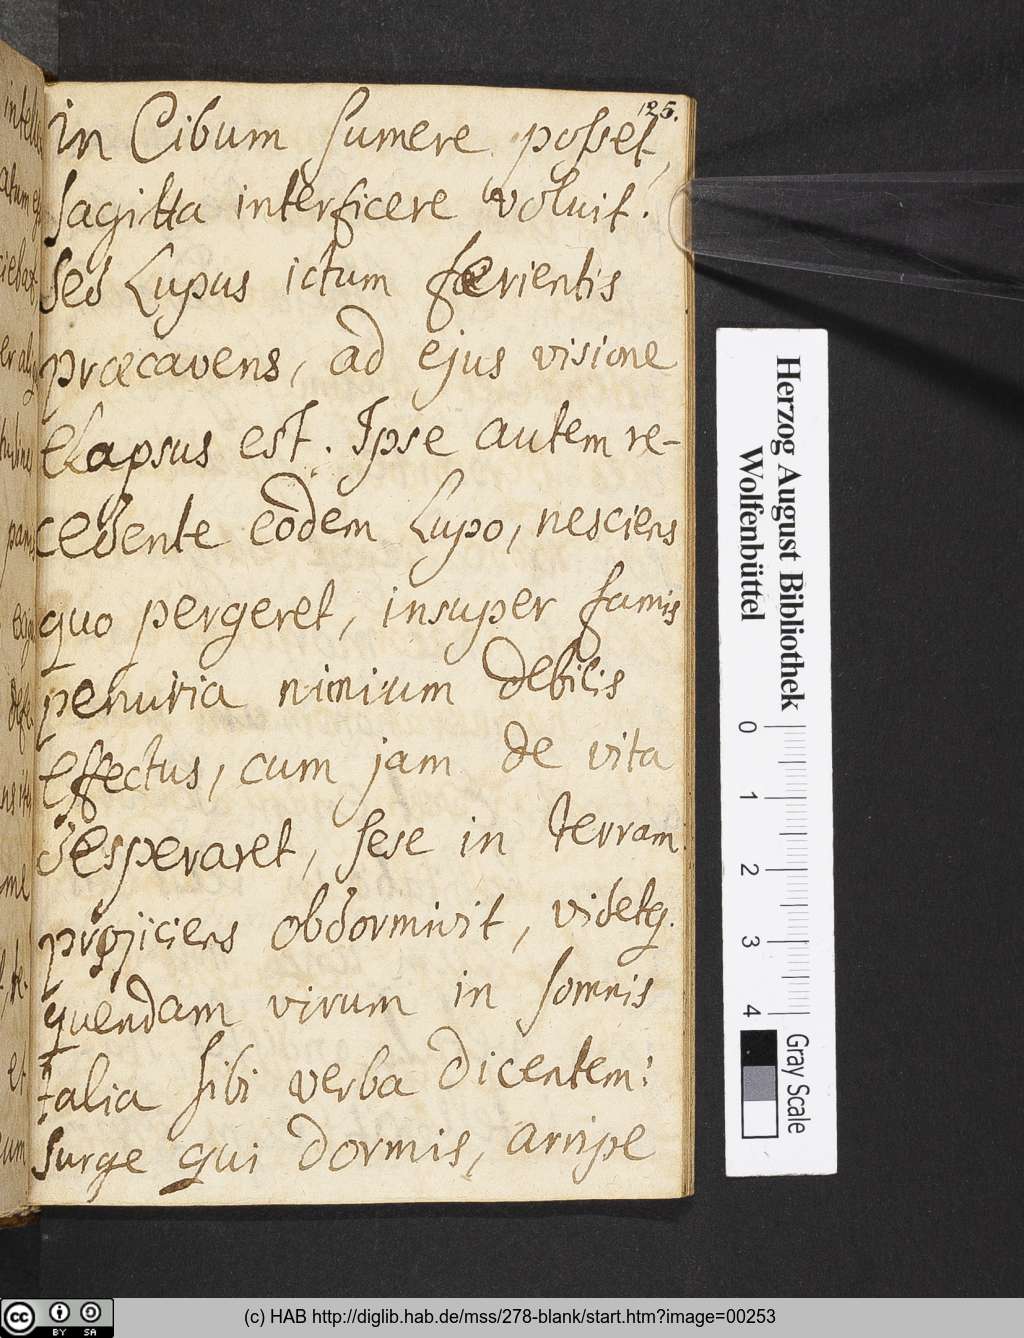 125.
in Cibum sumere posset,
sagitta interficere voluit.
sed Lupus ictum ferientis
præcavens, ad ejus visione
elapsus est. Ipse autem re-
cedente eodem Lupo, nesciens
quo pergeret, insuper famis
penuria nimium debilis
effectus, cum jam de vita
desperaret, sese in terram
projiciens obdormivit, videtq.
quendam virum in somnis
talia sibi verba dicentem:
surge qui dormis, arripe
Herzog August Bibliothek
Wolfenbüttel
0 1 2 3 4
Gray Scale
cc BY SA
(c) HAB http://diglib.hab.de/mss/278-blank/start.htm?image=00253